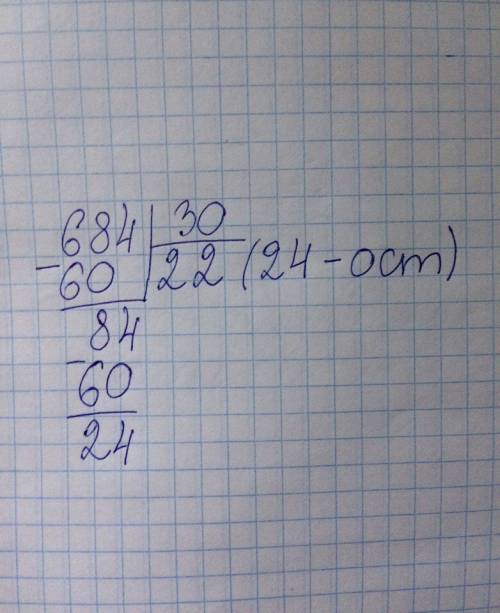 684 30
- 60 22 (24 - ост)
84
- 60
24